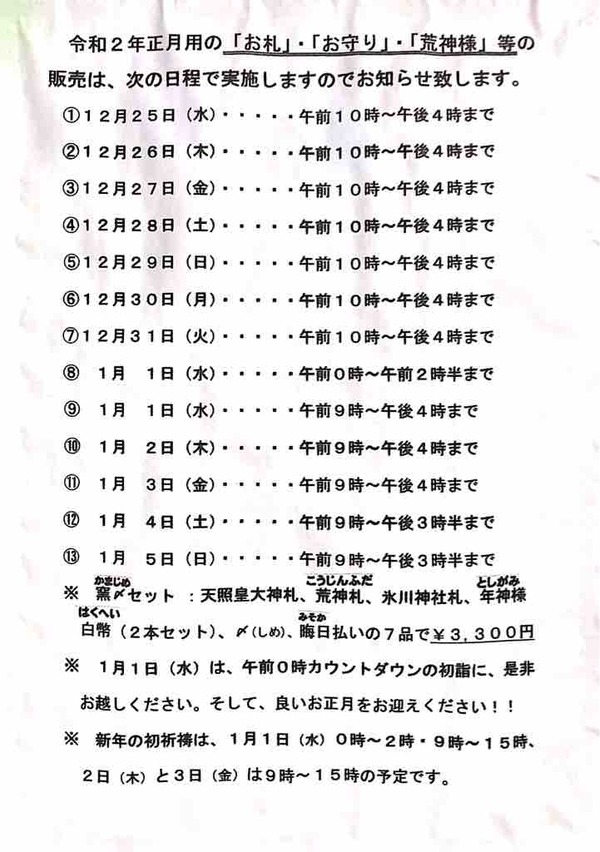 令和２年正月用の「お札」・「お守り」・「荒神様」等の
販売は、次の日程で実施しますのでお知らせ致します。
①１２月２５日（水）・・・・・午前１０時～午後４時まで
②１２月２６日（木）・・・・・午前１０時～午後４時まで
③１２月２７日（金）・・・・・午前１０時～午後４時まで
④１２月２８日（土）・・・・・午前１０時～午後４時まで
⑤１２月２９日（日）・・・・・午前１０時～午後４時まで
⑥１２月３０日（月）・・・・・午前１０時～午後４時まで
⑦１２月３１日（火）・・・・・午前１０時～午後４時まで
⑧　１月　１日（水）・・・・・午前０時～午前２時半まで
⑨　１月　１日（水）・・・・・午前９時～午後４時まで
⑩　１月　２日（木）・・・・・午前９時～午後４時まで
⑪　１月　３日（金）・・・・・午前９時～午後４時まで
⑫　１月　４日（土）・・・・・午前９時～午後３時半まで
⑬　１月　５日（日）・・・・・午前９時～午後３時半まで
かまじめ　こうじんふだ　としがみ
※　窯〆セット　：天照皇大神札、荒神札、氷川神社札、年神様
はくへい　みそか
白幣（２本セット）、〆（しめ）、晦日払いの７品で￥３,３００円
※　１月１日（水）は、午前０時カウントダウンの初詣に、是非
お越しください。そして、良いお正月をお迎えください！！
※　新年の初祈祷は、１月１日（水）０時～２時・９時～１５時、
２日（木）と３日（金）は９時～１５時の予定です。